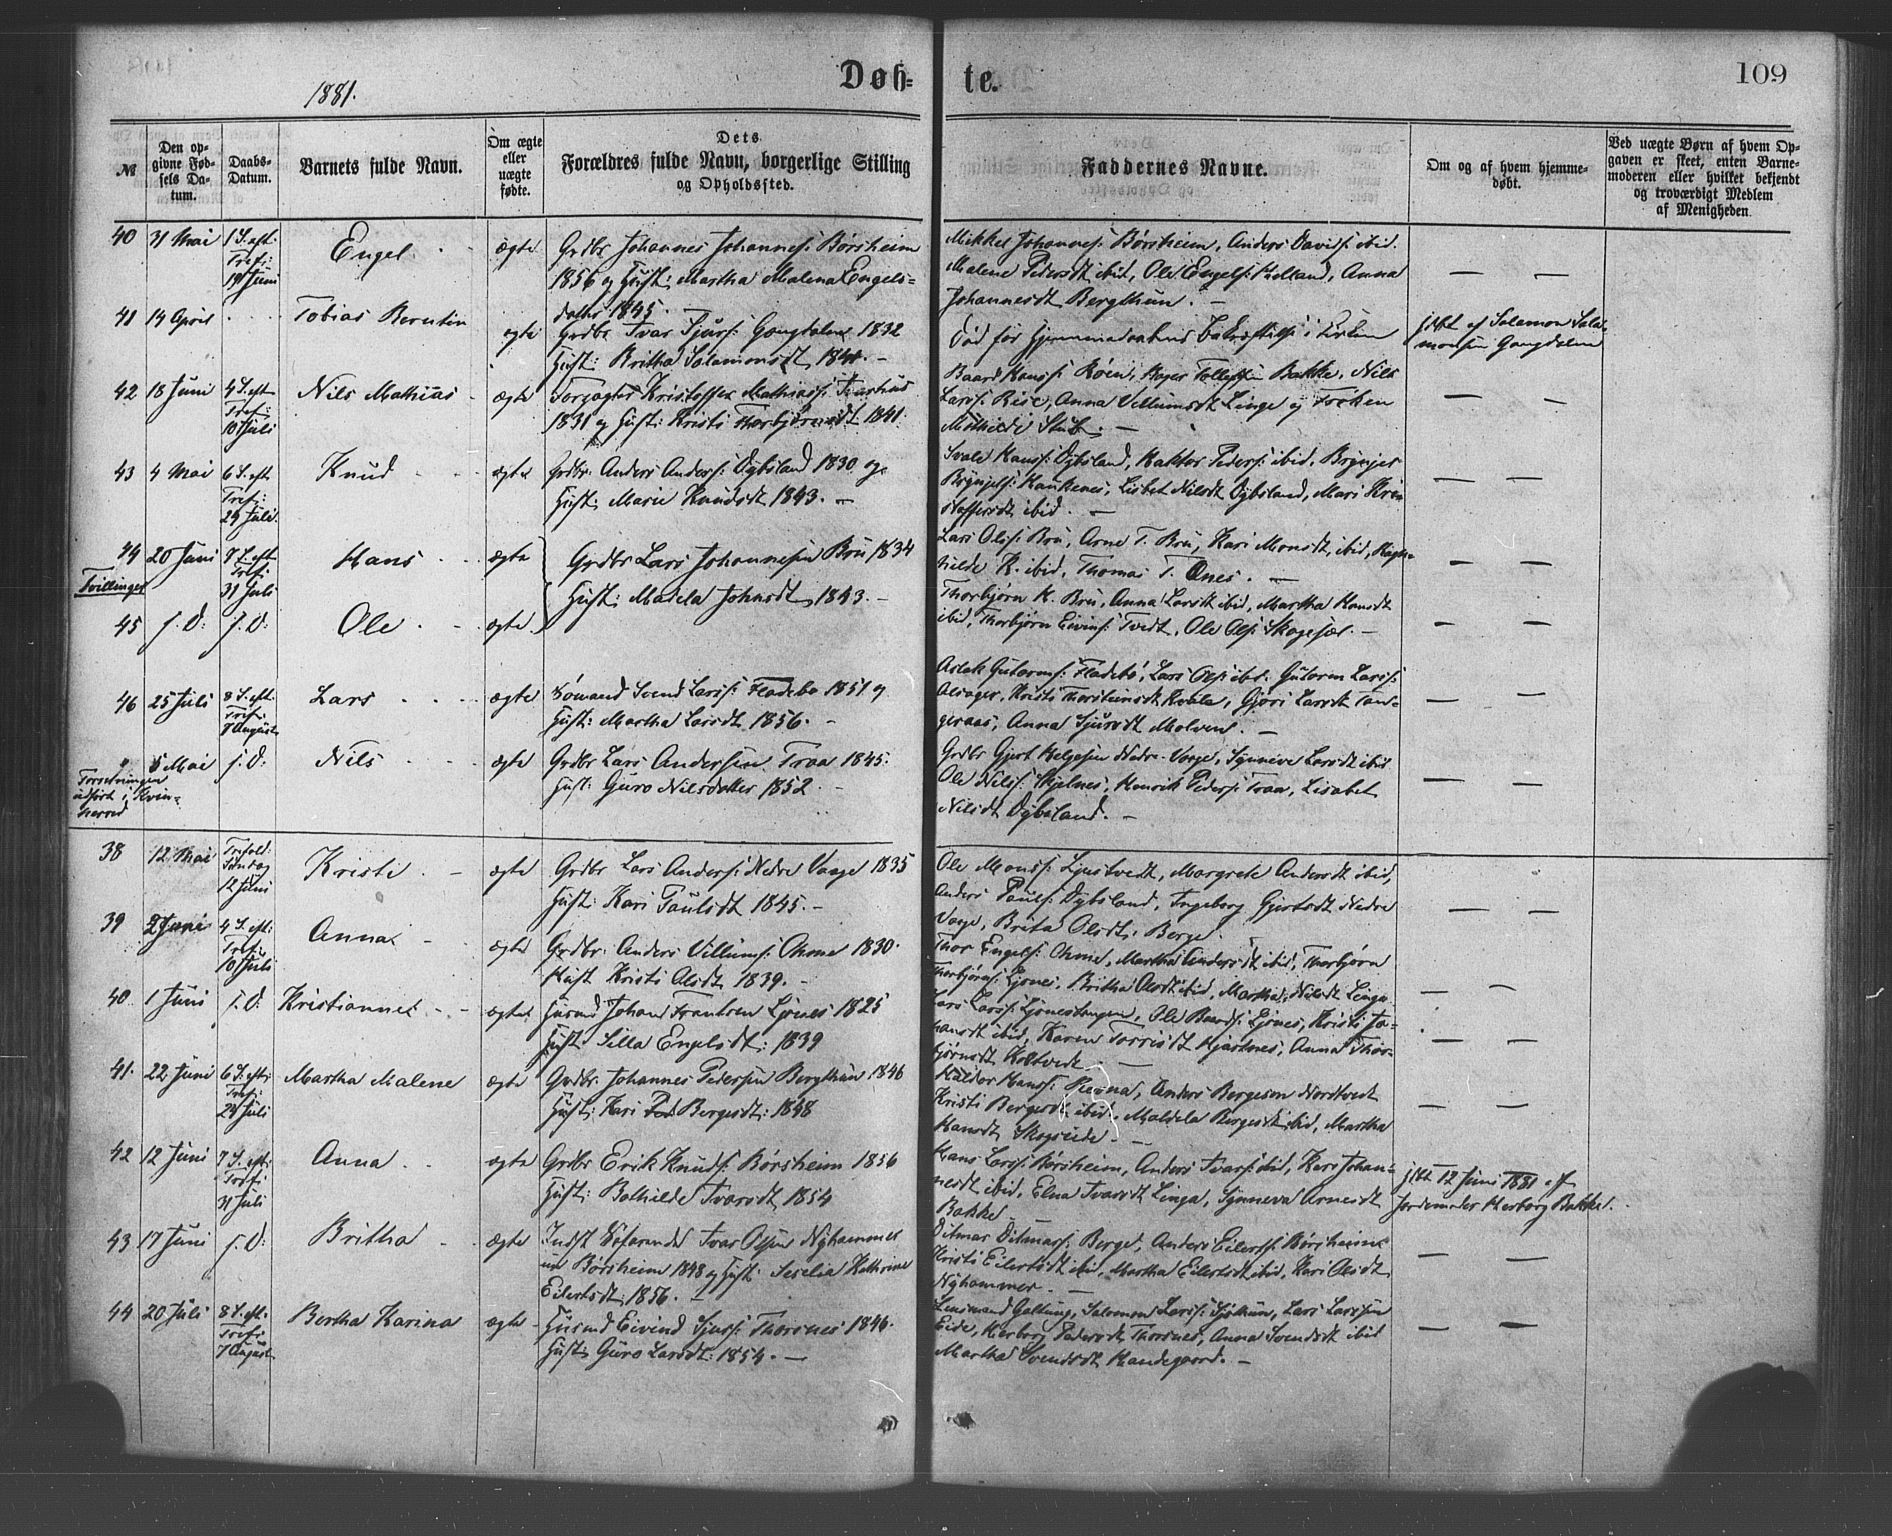 1881.
Døb- te.
109
№
Den op-
givne Fød-
sels Da-
tum.
Daabs-
Datum.
Barnets fulde Navn.
Om ægte
eller
uægte
fødte.
Dets
Forældres fulde Navn, borgerlige Stilling
og Opholdssted.
Faddernes Navne.
Om og af hvem hjemme-
døbt.
Ved uægte Børn af hvem Op-
gaven er skeet, enten Barne-
moderen eller hvilket bekjendt
og troværdigt Medlem
af Menigheden.
40 31 Mai 1 S. eft. Tref: 19 Juni Engel ægte
Grdbr Johannes Johanness: Børsheim
1856 og Hust: Martha Malena Engels-
datter 1845.
Mikkel Johanness: Børsheim, Anders Davids: ibid.
Malene Pedersdt ibid, Ole Engels: Holland, Anna
Johannesdt Bergthun. —
41 14 April Tobias Berntin ægte
Grdbr Ivar Sjurs: Gangdalen 1832
Hust: Britha Salamonsdt 1841. —
Død før Hjemmedaabens Bekræftelse i Kirken
hjdbt af Salomon Salo-
monsen Gangdalen
42 18 Juni 4 S. eft Tref: 10 Juli Nils Mathias ægte
Kristoffer Mathiass:
1831 og Hust: Kristi Thorbjørnsdt 1841.
Baard Hanss: Røen, Tollefsen Bakke, Nils
Larss: Reise, Anna Villumsdt Linge og Frøken
Mathilde Stub. —
43 4 Mai 6 S. eft Tref: 24 Juli Knud ægte
Grdbr: Anders Anderss: Dybsland 1830 og
Hust: Marie Knudsdt 1843. —
Svale Hanss: Dybsland, Peders: ibid, Brynjel
Brynjels: Haukenes, Lisbet Nilsdt Dybsland, Mari Kris-
stoffersdt ibid. —
44 20 Juni 7 S. eft Tref: 31 Juli Hans ægte
Tvillinger
Grdbr Lars Johannesen Bru 1834
Hust: Madela Johnsdt 1843. —
Lars Olss: Bru, Arne T. Bru, Kari Monsdt, ibid, Ragn-
hilde K. ibid, Thomas T. Ones. —
45 s. D: s. D: Ole ægte
Thorbjørn K. Bru, Anna Larsdt ibid, Martha Hansdt
ibid, Thorbjørn Eivins: Tvedt, Ole Ols: Skogesæl. —
46 25 Juli 8 S. eft. Tref: 7 August Lars ægte
Sømand Svend Larss: Fladebø 1851 og
Hust: Martha Larsdt 1856. —
Aslak Gutorms: Fladebø, Lars Ols: ibd. Gutorm Larss:
Alsager, Kristi Thorsteinsdt Kvale, Gjøri Larsdt Tan-
geraas, Anna Sjursdt Molven. —
" 5 Mai s. D: Nils ægte
indført i Kvin-
herred
Grdbr Lars Andersen Traa 1845.
Hust: Guro Nilsdatter 1852. —
Grdbr Gjert Helgesen Nedre-Vaage, Synneve Larsdt ibid
Ole Nilss: Skjelnes, Henrik Peders: Traa, Lisabet
Nilsdt Dybsland. —
38 12 Mai Trefold: Søndag 12 Juni Kristi ægte
Grdbr Lars Anderss: Nedre Vaage 1835
Hust: Kari Paulsdt 1845. —
Ole Monss: Ljustvedt, Margrete Andersdt ibid,
Anders Pauls: Dybsland, Ingeborg Gjertsdt Nedre
Vaage, Brita Olsdt: Berge.
39 2 Juni 4 S. eft: Tref: 10 Juli Anna ægte
Grdbr: Anders Villums: Ohme 1830.
Hust Kristi Olsdt 1839. —
Thor Engels: Ohme, Martha Andersdt ibid, Thorbjørn
Thorbjørns: Ljones, Britha Olsdt ibid, Martha Nilsdt Linga
40 1 Juni s. D: Kristianne ægte
Husmd Johan Frantsen Ljones 1825
Hust Silla Engelsdt: 1839
Lars Larss: Ljonestangen, Ole Baards: Ljones, Kristi Jo-
hansdt ibid, Karen Torrisdt Hjartnes, Anna Thor-
bjørnsdt
41. 22 Juni 6 S. eft: Tref: 24 Juli Martha Malene ægte
Grdbr. Johannes Pedersen Bergthun 1846
Hust: Kari Bergesdt: 1848
Haldor Hanss: Anders Bergesen Nordtvedt
Kristi Bergesdt ibid, Maldela Bergesdt ibid, Martha
Hansdt Skogseide. —
42 12 Juni 7 S. eft: Tref: 31 Juli Anna ægte
Grdbr Erik Knuds: Børsheim 1856
Hust: Bothilde Ivarsdt 1854
Hans Larss: Børsheim, Anders Ivars: ibid, Kari Johan-
nesdt ibid, Elna Ivarsdt Linga, Synneva Arnesdt
Bakke.
hjdbt 12 Juni 1881 af
Jordemoder Herborg Bakke.
43 17 Juni s. D: Britha ægte
Indst Søfarende Ivar Olsen Nyhammer
nu Børsheim 1848 og Hust: Seselia Kathrine
Eilertsdt: 1856. —
Ditmar Ditmars: Berge, Anders Eilerts: Børsheim
Kristi Eilertsdt ibid, Martha Eilertsdt ibid, Kari Olsdt
Nyhammer. —
44 20 Juli 8 S. eft. Tref: 7 August Bertha Karina ægte
Husmd Eivind Sjurs: Thorsnes 1846.
Hust: Guro Larsdt: 1854. —
Lensmand Galtung, Salomon Larss: Sjothun, Lars Larssen
Eide, Herborg Pedersdt Thorsnes, Anna Svendsdt ibid
Martha Svendsdt Handegaard. —